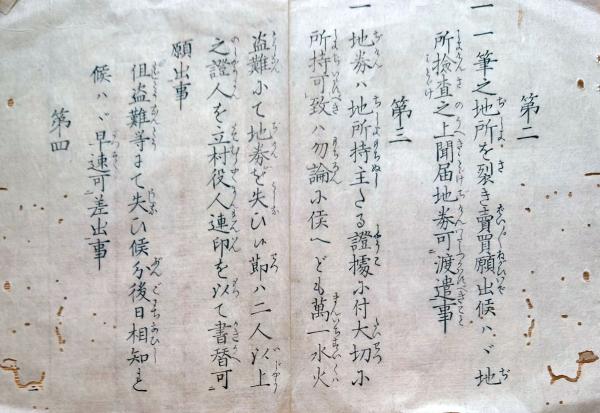 第二
一 一筆之地所を裂き賣買願出候ハヾ地
所撿査之上聞届地券可渡遣事
第三
一 地券ハ地所持主たる證據に付大切に
所持可致ハ勿論に候へども萬一水火
盗難にて地券を失ひ候節ハ二人以上
之證人を立村役人連印を以て書替可
願出事
但盗難等にて失ひ候分後日相知れ
候ハヾ早速可差出事
第四
二